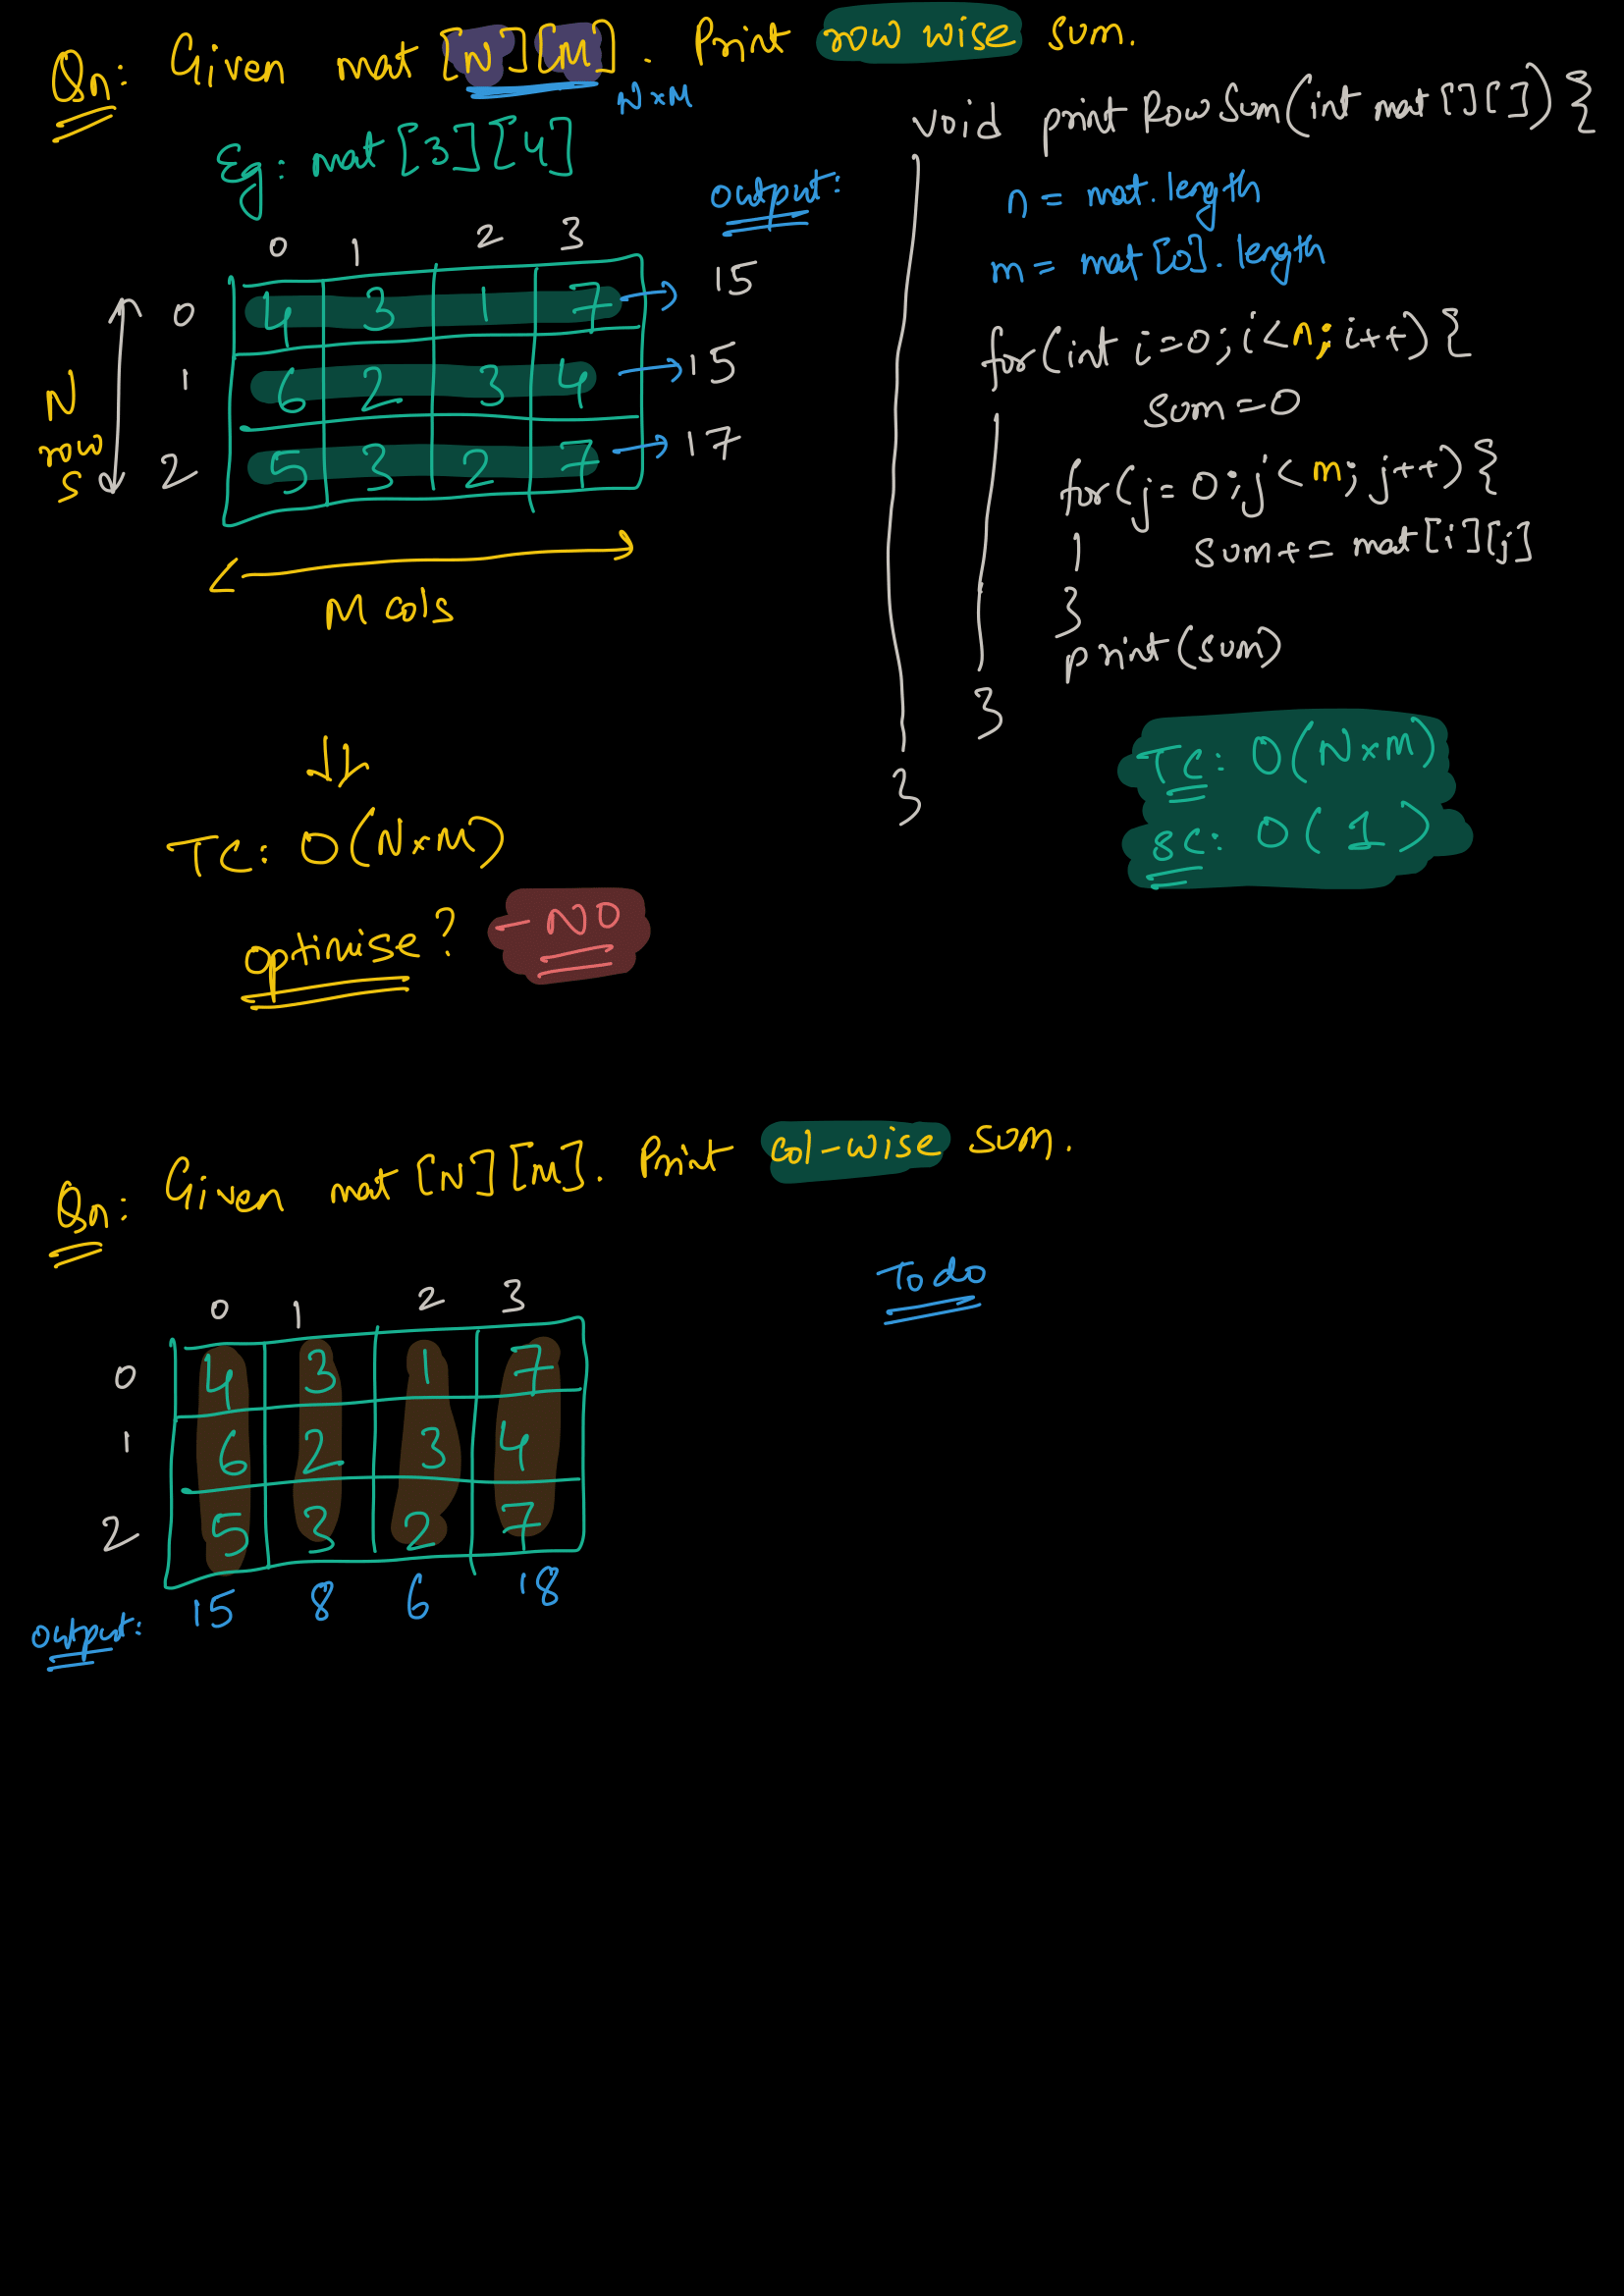 Qn: Given mat [N][M]. Print row wise sum.
N×M
Eg: mat [3][4]
output:
0 1 2 3
0 4 3 1 7 → 15
1 6 2 3 4 → 15
2 5 3 2 7 → 17
N
row
s
M cols
TC: O(N×M)
optimise? - NO
void print Row Sum(int mat[][]) {
n = mat.length
m = mat[0].length
for(int i=0; i<n; i++) {
sum=0
for(j=0; j<m; j++) {
sum+= mat[i][j]
}
print(sum)
}
}
TC: O(N×M)
SC: O(1)
Qn: Given mat [N][M]. Print col-wise sum.
To do
0 1 2 3
0 4 3 1 7
1 6 2 3 4
2 5 3 2 7
output: 15 8 6 18